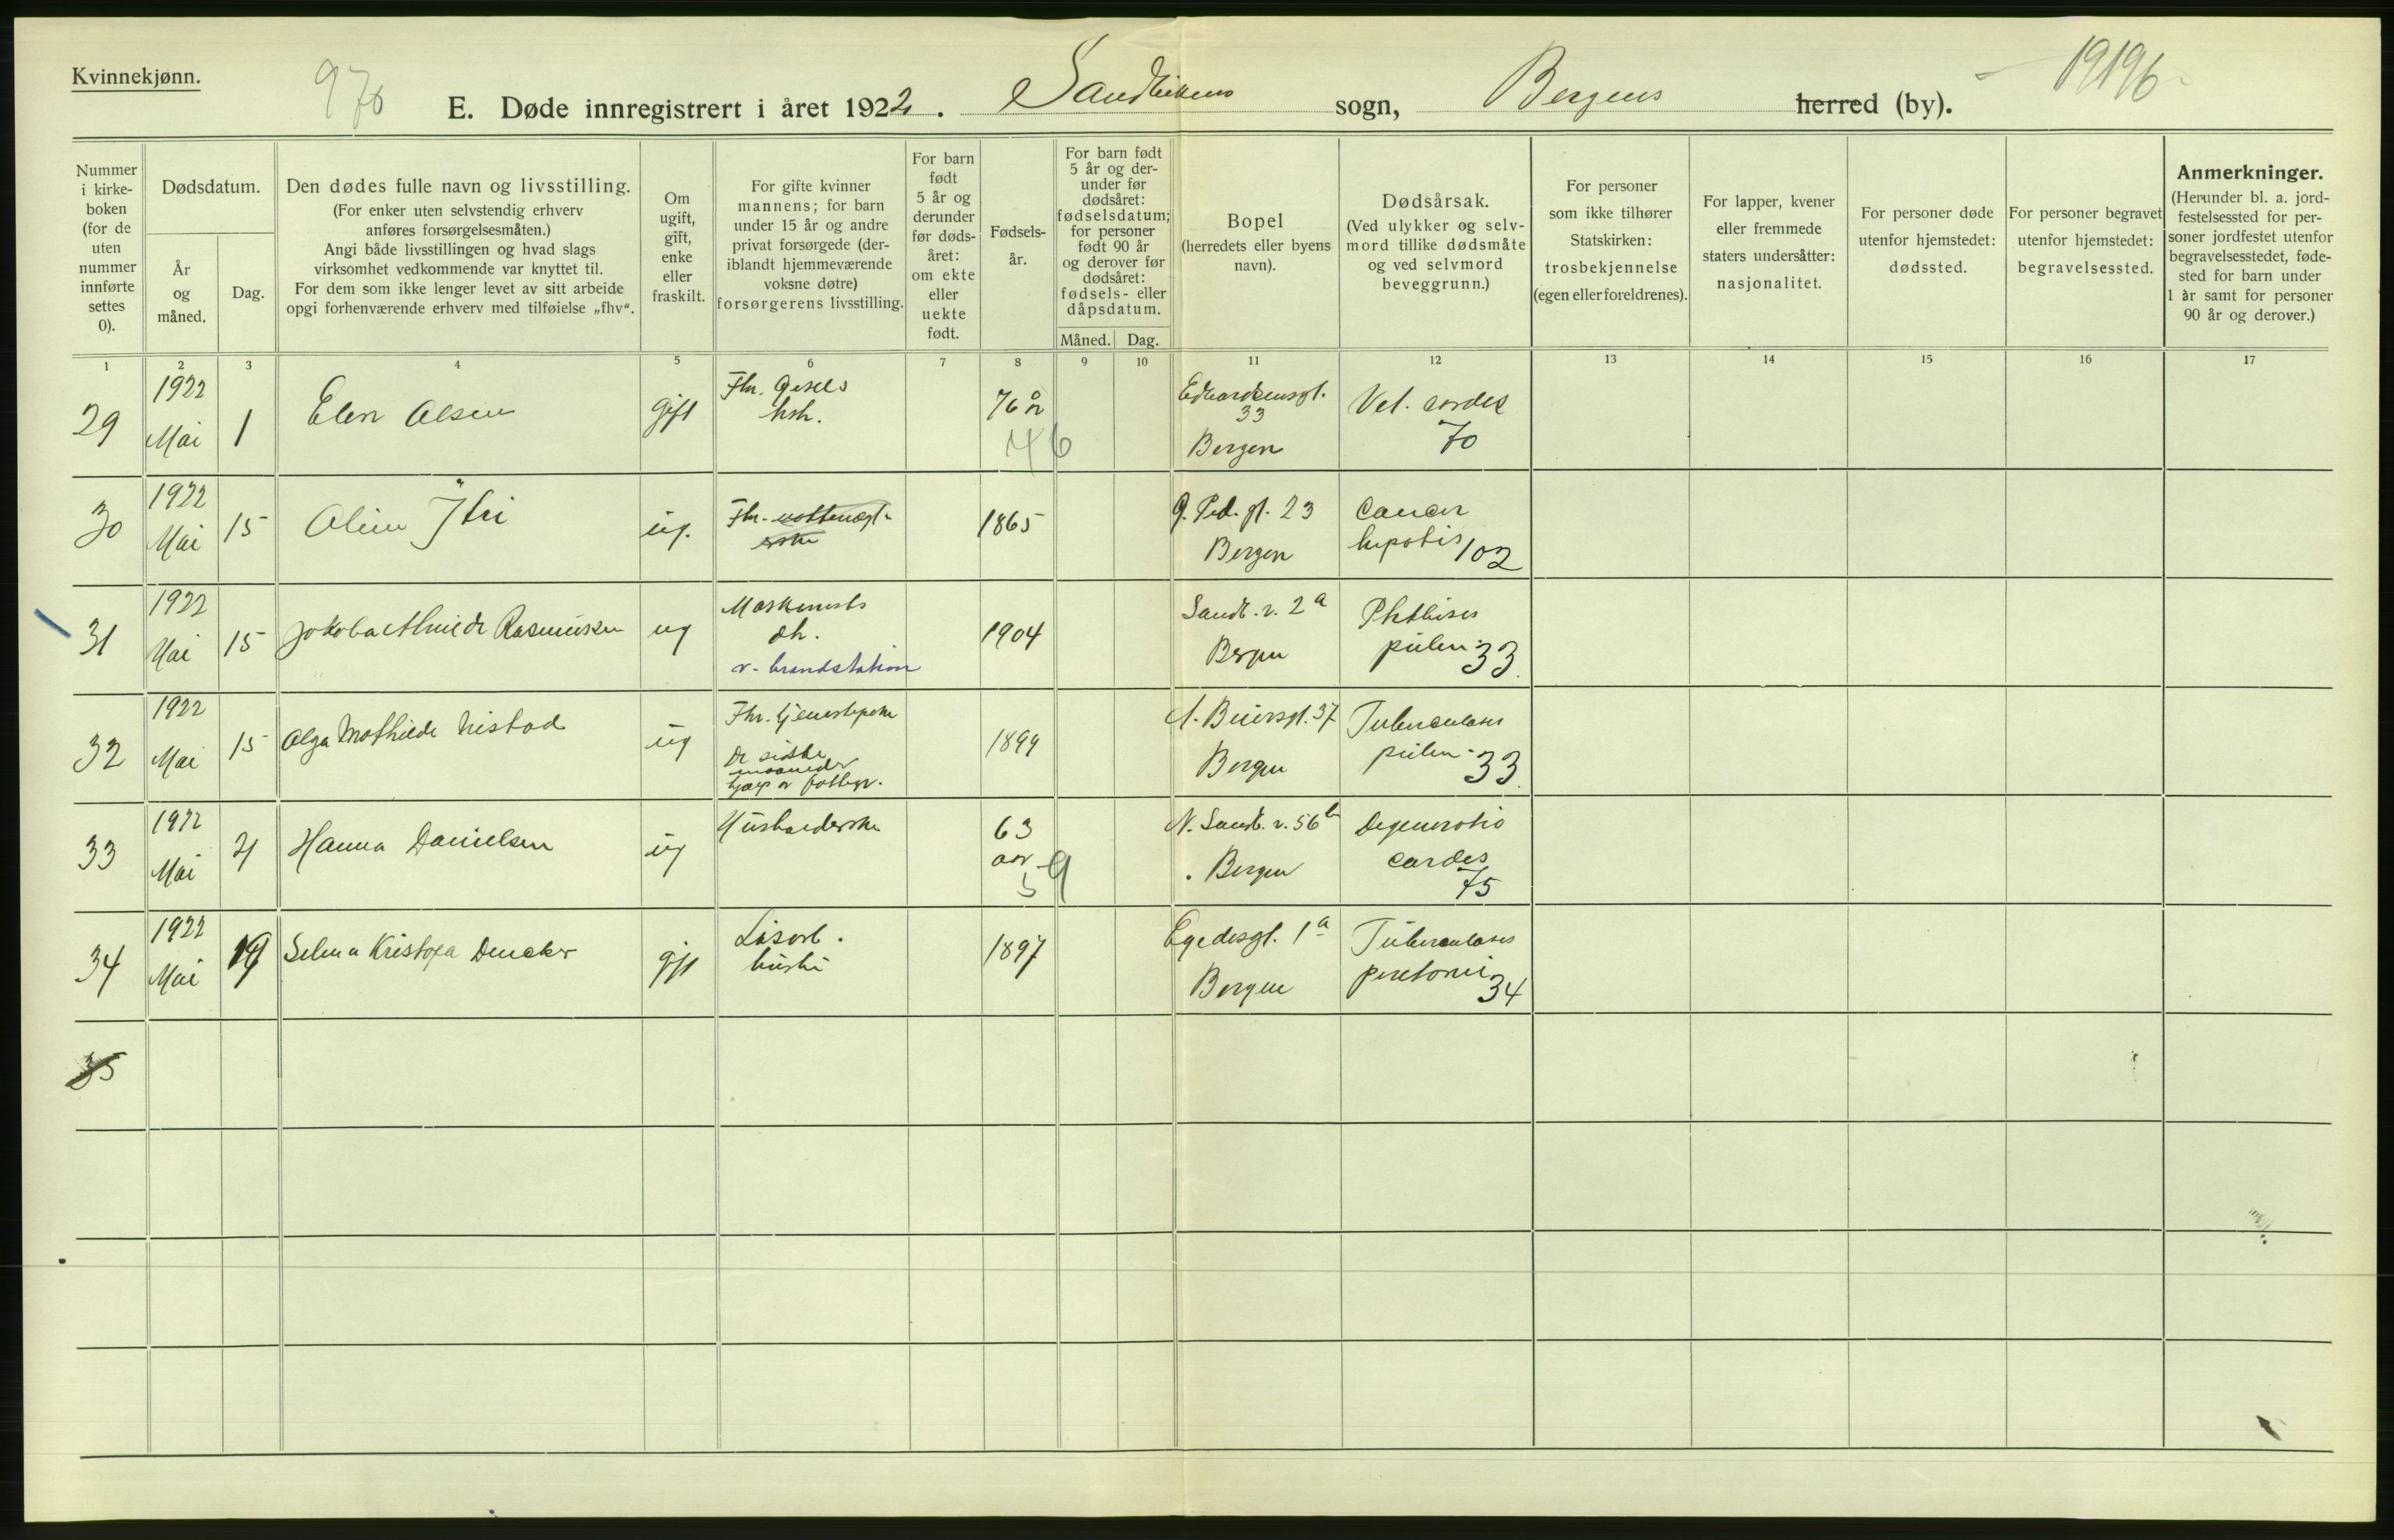 Kvinnekjønn.
970
E. Døde innregistrert i året 1922. Sandvikens sogn, Bergens herred (by).
19196
Nummer i kirke-boken (for de uten nummer innførte settes 0).
Dødsdatum.
År og måned.
Dag.
Den dødes fulle navn og livsstilling.
(For enker uten selvstendig erhverv anføres forsørgelsesmåten.)
Angi både livsstillingen og hvad slags virksomhet vedkommende var knyttet til.
For dem som ikke lenger levet av sitt arbeide opgi forhenværende erhverv med tilføielse „fhv“.
Om ugift, gift, enke eller fraskilt.
For gifte kvinner mannens; for barn under 15 år og andre privat forsørgede (deriblandt hjemmeværende voksne døtre) forsørgerens livsstilling.
For barn født 5 år og derunder før dødsåret: om ekte eller uekte født.
Fødsels-år.
For barn født 5 år og derunder før dødsåret: fødselsdatum; for personer født 90 år og derover før dødsåret: fødsels- eller dåpsdatum.
Måned. Dag.
Bopel
(herredets eller byens navn).
Dødsårsak.
(Ved ulykker og selvmord tillike dødsmåte og ved selvmord beveggrunn.)
For personer som ikke tilhører Statskirken: trosbekjennelse (egen eller foreldrenes).
For lapper, kvener eller fremmede staters undersåtter: nasjonalitet.
For personer døde utenfor hjemstedet: dødssted.
For personer begravet utenfor hjemstedet: begravelsessted.
Anmerkninger.
(Herunder bl. a. jordfestelsessted for personer jordfestet utenfor begravelsesstedet, fødested for barn under 1 år samt for personer 90 år og derover.)
1 2 3 4 5 6 7 8 9 10 11 12 13 14 15 16 17
29 1922 Mai 1 Elen Olsen gift hsh. 76 år 46 33 Bergen Vet. cordis 70
30 1922 Mai 15 ug. 1865 G. Ped. gt. 23 Bergen Cancer hepatis 102
31 1922 Mai 15 Rasmussen ug Maskinists dt. v. brandstation 1904 Sandv. v. 2a Bergen Phthisis pulm 33
32 1922 Mai 15 Olga Mathilde Nistad ug De sidste maaneder hjælp av fattigv. 1899 37 Bergen Tuberculosis pulm 33
33 1922 Mai 21 Hanna Danielsen ug Husholderske 63 aar 59 N. Sandv. v. 56b Bergen Degeneratio cordis 75
34 1922 Mai 19 Selma gift Løsarb. hustru 1897 Egedesgt. 1a Bergen Tuberculosis peritonei 34
35